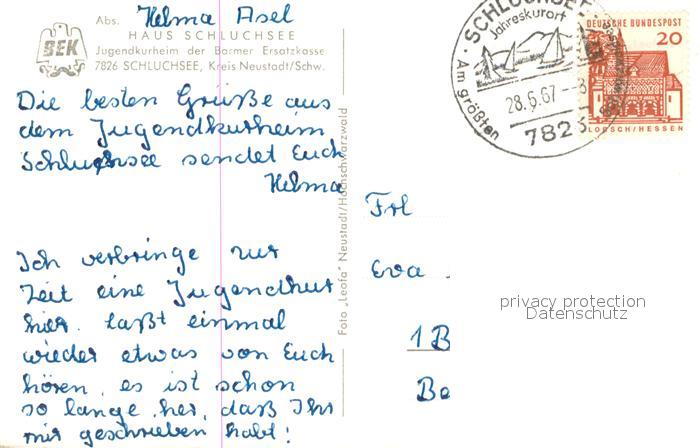 Abs. Helma Asel
BEK
HAUS SCHLUCHSEE
Jugendkurheim der Barmer Ersatzkasse
7826 SCHLUCHSEE, Kreis Neustadt/Schw.
Die besten Grüße aus
dem Jugendkurheim
Schluchsee sendet Euch
Helma
Ich verbringe zur
Zeit eine Jugendkur
hier. Laßt einmal
wieder etwas von Euch
hören, es ist schon
so lange her, daß Ihr
mir geschrieben habt!
Foto „Leofa" Neustadt/Hochschwarzwald
SCHLUCHSEE
Jahreskurort
Am größten
28.6.67
782
DEUTSCHE BUNDESPOST
20
LORSCH/HESSEN
Frl
Eva
1 B
Be
privacy protection
Datenschutz